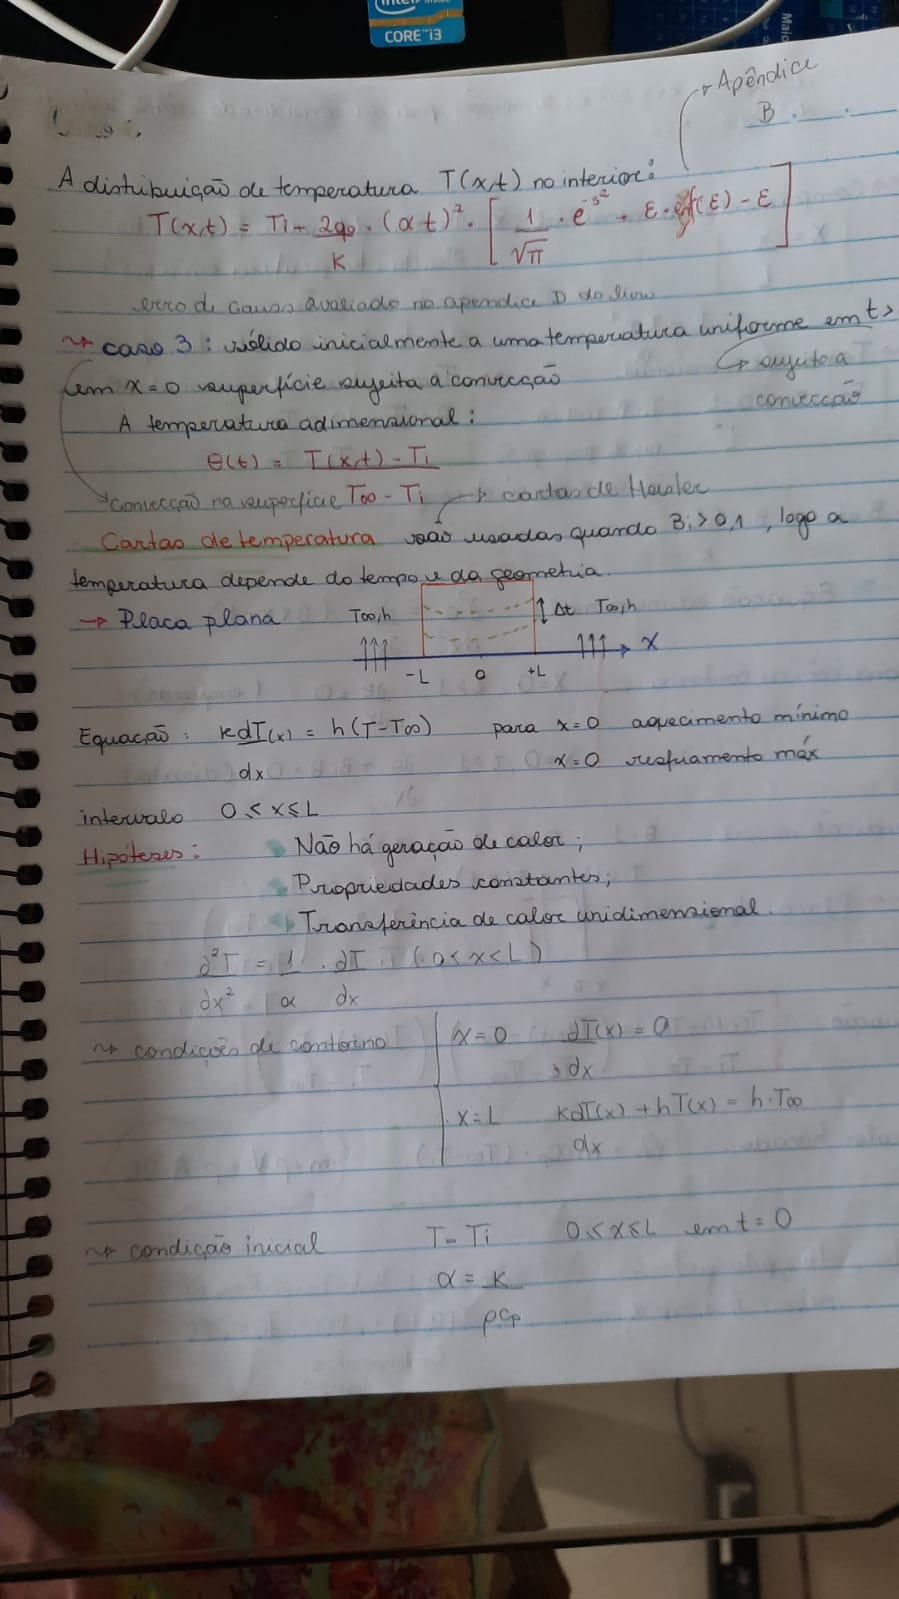 intel inside
CORE i3
Maio
Apêndice
B
A distribuição de temperatura T(x,t) no interior:
T(x,t) = Ti + 2q0/K · (αt)² · [1/√π · e^-ε² + ε · erf(ε) - ε]
erro de Gauss avaliado no apendice D do livro
↝ caso 3: sólido inicialmente a uma temperatura uniforme em t>
em x=0 superfície sujeita a convecção ↳ sujeito a
convecção
A temperatura adimensional:
θ(t) = T(x,t) - Ti / T∞ - Ti
convecção na superfície → cartas de Heisler
Cartas de temperatura são usadas quando Bi > 0,1, logo a
temperatura depende do tempo e da geometria.
→ Placa plana T∞,h Δt T∞,h
x
-L 0 +L
Equação: kdT(x)/dx = h(T-T∞) para x=0 aquecimento mínimo
x=0 resfriamento máx
intervalo 0 ≤ x ≤ L
Hipóteses: Não há geração de calor;
Propriedades constantes;
Transferência de calor unidimensional.
∂²T/dx² = 1/α · ∂T/dx (0<x<L)
↝ condições de contorno x=0 ∂T(x)/dx = 0
x=L kdT(x)/dx + hT(x) = h·T∞
↝ condição inicial T=Ti 0≤x≤L em t=0
α = K/ρCp